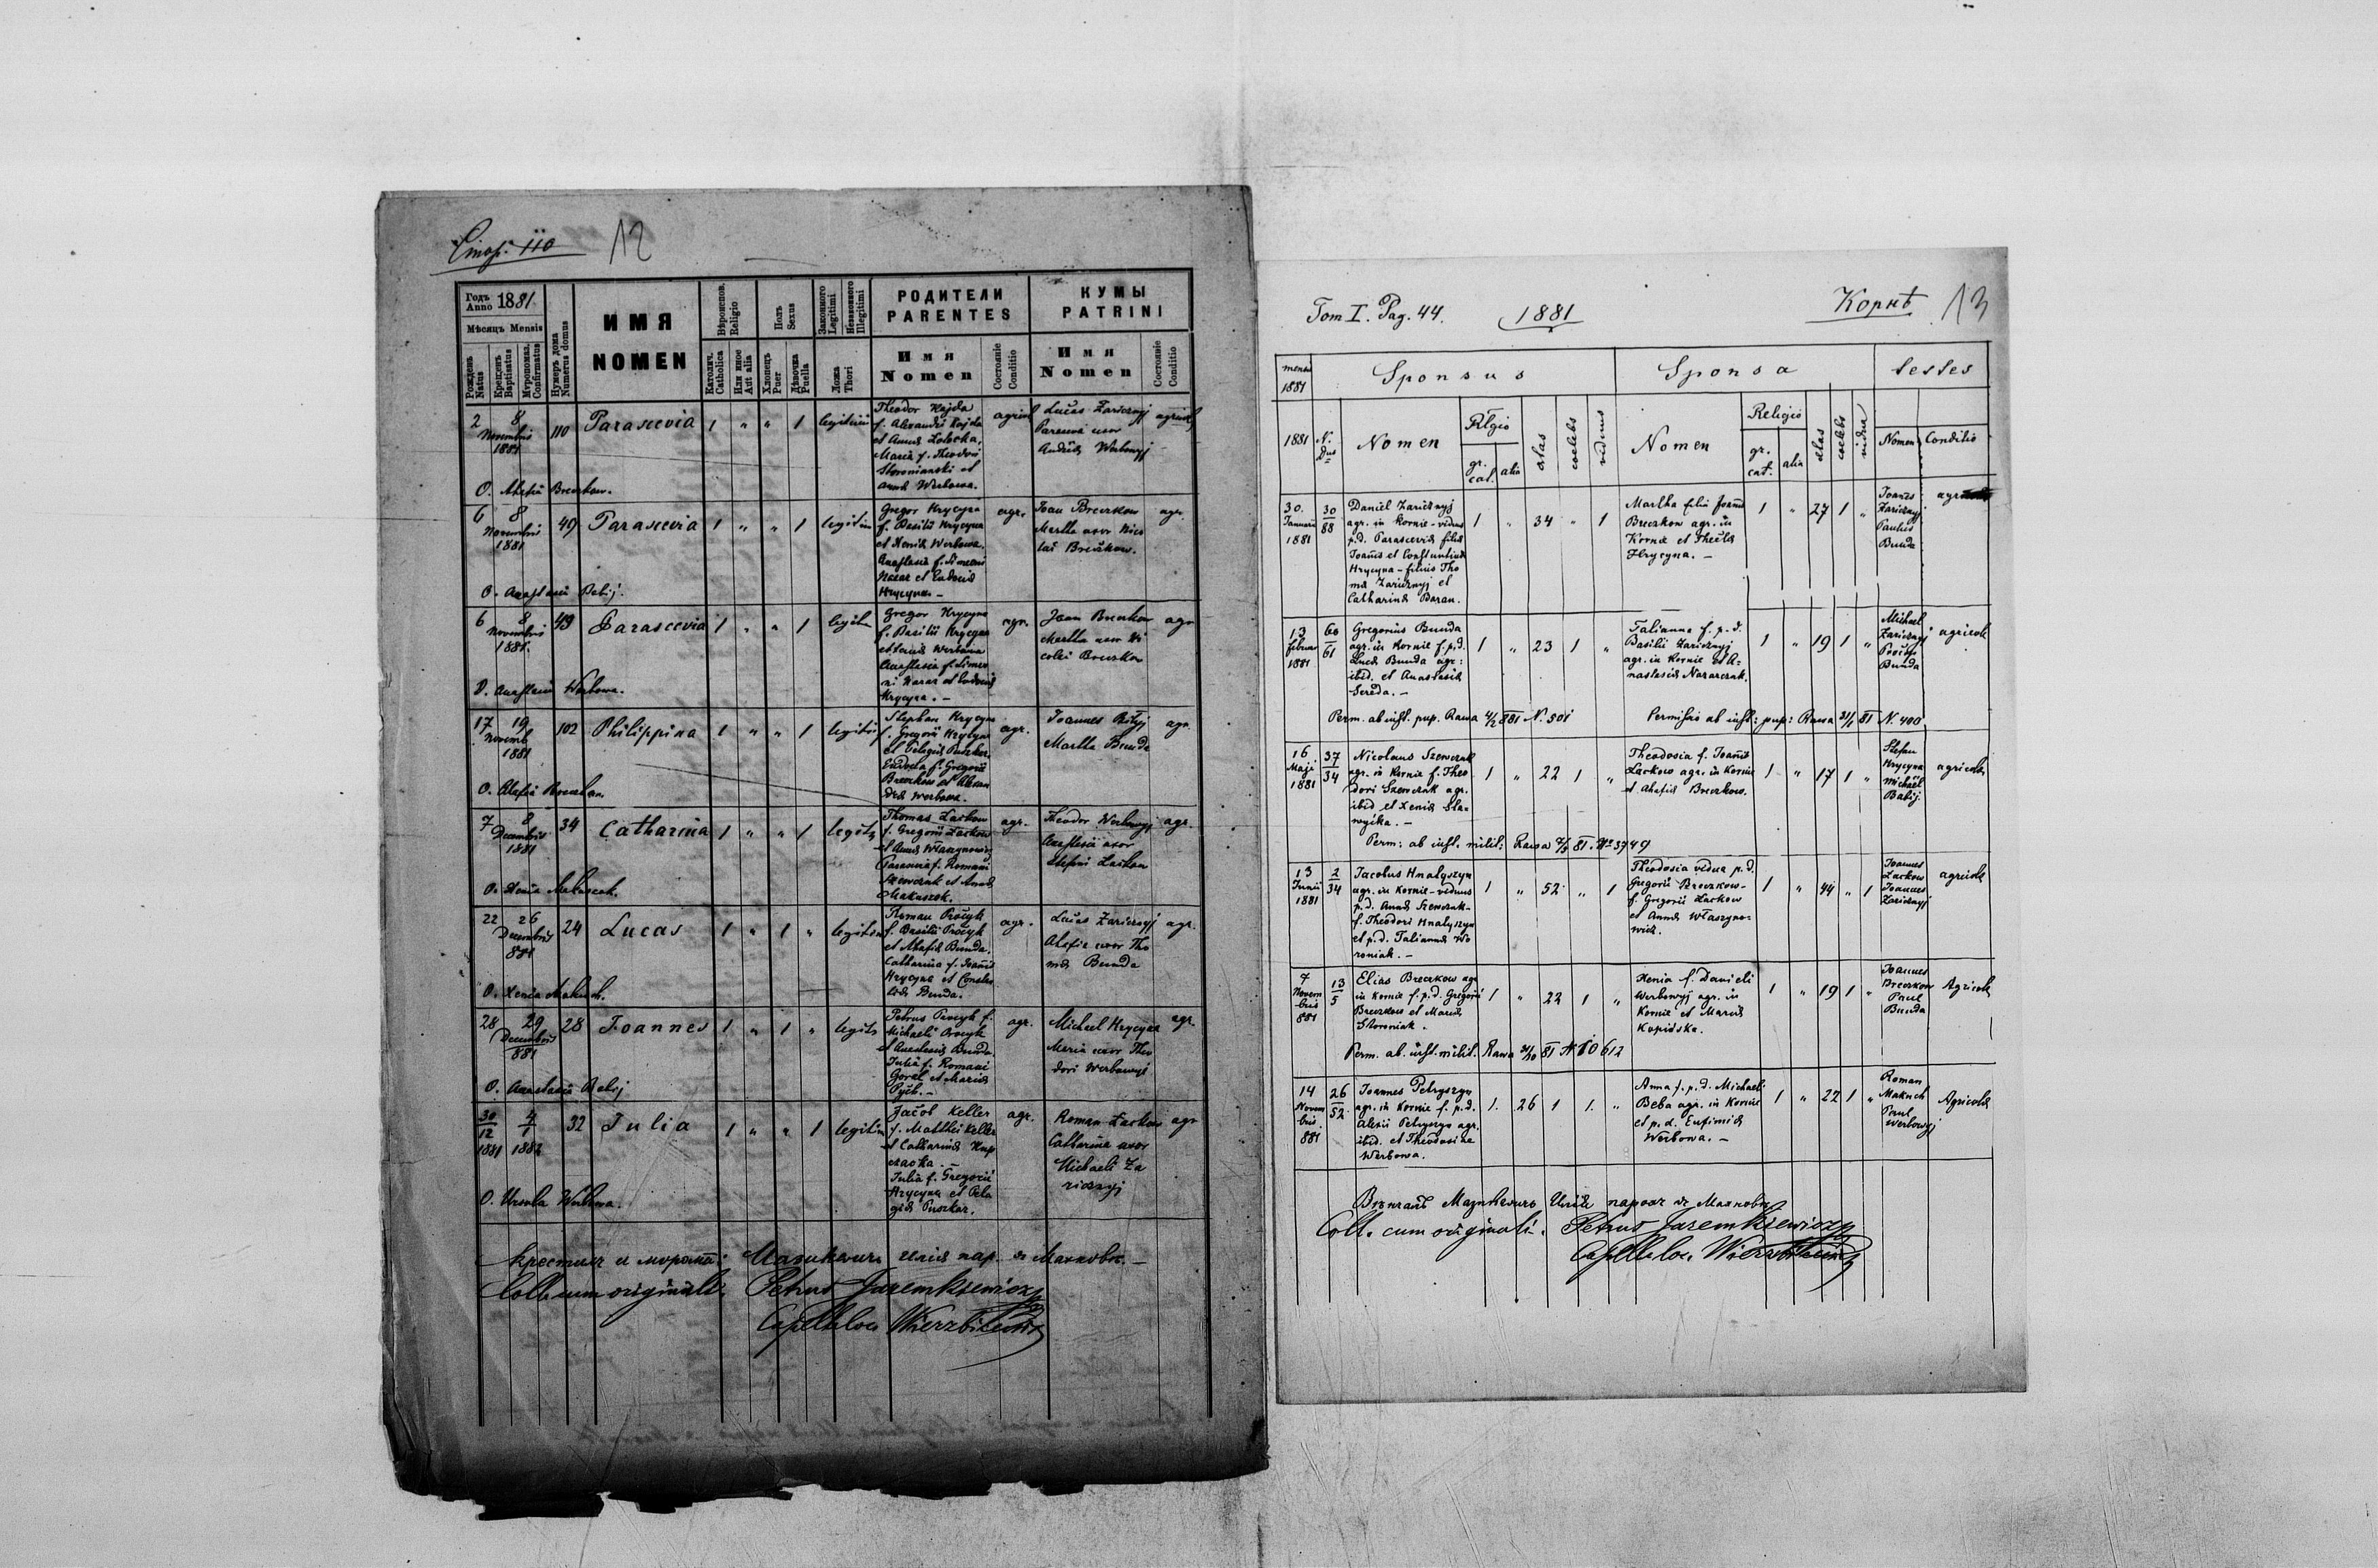 Стор. 110
12
Годъ Anno 1881
Мѣсяцъ Mensis
Рожденъ Natus
Крещенъ Baptisatus
Мѵропомаз. Confirmatus
Нумеръ дома Numerus domus
ИМЯ
NOMEN
Вѣроиспов. Religio
Католич. Catholica
Или иное Aut alia
Полъ Sexus
Хлопецъ Puer
Дѣвочка Puella
Законного Legitimi
Незаконного Illegitimi
Ложа Thori
РОДИТЕЛИ
PARENTES
Имя
Nomen
Состояніе Conditio
КУМЫ
PATRINI
Имя
Nomen
Состояніе Conditio
2 8 Novembris 1881 110 Parascevia 1 " " 1 legitimi
Theodor Kajda
f. Alexandri Kajda
et Annæ
Maria f. Theodori
et
Anna Werbowa.
agricol
Lucas Zaricznyj
uxor
Andreæ Werbowyj
agricol
O. Breczkow.
6 8 Novembris 1881 49 Parascevia 1 " " 1 legitim
Gregor Hrycyna
f. Basilii Hrycyna
et Xeniæ Werbowa.
Anastasia f. Simeoni
Nazar et Eudociæ
Hrycyna. –
agr.
Joan Breczkow
Martha uxor Nico
lai Breczkow.
agr.
O. Anastasia Babij.
6 8 Novembris 1881. 49 Parascevia 1 " " 1 legitim
Gregor Hrycyna
f. Basilii Hrycyna
et Xeniæ Werbowa
Anastasia f. Simeo
ni Nazar et Eudociæ
Hrycyna. –
agr.
Joan Breczkow
Martha uxor Ni
colai Breczkow
agr
O. Anastasia Werbowa.
17 19 Novemb 1881 102 Philippina 1 " " 1 legitim
Stephan Hrycyna
f. Gregorii Hrycyna
et Pelagiæ Puszkar
Eudocia f. Gregorii
Breczkow et Alexan
dræ Werbowa.
agr.
Joannes Bilyj
Martha Bunda
agr.
O. Breczkow
7 8 Decembris 1881 34 Catharina 1 " " 1 legitim
Thomas Lackow
f. Gregorii Lackow
et Annæ Własznowicz
f. Romani
Szewczuk et Annæ
Makuszok.
agr.
Theodor Werbowyj
Anastasia uxor
Stefani Lackow
agr.
O. Xenia
22 26 Decembris 881 24 Lucas 1 " 1 " legitim
Roman Procyk
f. Basilii Procyk
et Bunda.
Catharina f. Joannis
Hrycyna et
Bunda.
agr.
Lucas Zaricznyj
uxor Tho
mæ Bunda
agr.
O. Xenia Makuch.
28 29 Decembris 881 28 Joannes 1 " 1 " legitim
Petrus Procyk f.
Michaeli Procyk
et Anastasiæ Bunda.
Julia f. Romani
Goral et Mariæ
Pych. –
agr.
Michael Hrycyna
Maria uxor Theo
dori Werbowyj
agr.
O. Anastasia Babij
30/12 1881 4/1 1882 32 Julia 1 " " 1 legitim
Jacob Keller
f. Matthei Keller
et Catharinæ
–
Julia f. Gregorii
Hrycyna et Pela
giæ Puszkar.
agr.
Roman Lackow
Catharina uxor
Michaeli Za
ricznyj
agr
O. Ursula Werbowa.
Крестилъ и Мазикевичъ Илія пар. зъ Махновъ. –
Coll. cum originali. Petrus Jaremkiewicz
Wierzbica
Tom I. Pag. 44.
1881
Корнѣ
13
mensis 1881
Sponsus
Sponsa
testes
1881
N. Dus
Nomen
Rlgio
gr. cat.
alia
ætas
coelebs
viduus
Nomen
Religio
gr. cat.
alia
ætas
coelebs
vidua
Nomen
Conditio
30. Januarii 1881 30/88
Daniel Zaricznyj
agr. in Kornie – viduus
p.d. Parasceviæ filiæ
Joannis et Constantinæ
Hrycyna – filius Tho
mæ Zaricznyj et
Catharinæ Baran.
1 " 34 " 1
Martha filia Joannis
Breczkow agr. in
Kornie et Theclæ
Hrycyna. –
1 " 27 1 "
Joannes
Zaricznyj
Paulus
Bunda
agricolæ
13 februar 1881 60/61
Gregorius Bunda
agr. in Kornie f. p.d.
Lucæ Bunda agr:
ibid. et Anastasiæ
Sereda. –
1 " 23 1 "
Tatianna f. p. d.
Basilii Zaricznyj
agr. in Kornie et A-
nastasiæ Nazarczuk.
1 " 19 1 "
Michael
Zaricznyj
Bunda
agricolæ
Perm. ab inst. pup. Rawa 4/2 881 N. 501
Permissio ab inst: pup: Rawa 31/1 81 N. 400
16 Maji 1881 37/34
Nicolaus Szewczuk
agr. in Kornie f. Theo
dori Szewczuk agr.
ibid et Xeniæ Sla-
wyka. –
1 " 22 1 "
Theodosia f. Joannis
Lackow agr. in Kornie
et Breczkow.
1 " 17 1 "
Stefan
Hrycyna
Michael
Babij.
agricolæ
Perm: ab inst. milit: Rawa 7/5 81. No 3749
13 Junii 1881 2/34
Jacobus Hnatyszyn
agr. in Kornie – viduus
p.d. Annæ Szewczuk –
f. Theodori Hnatyszyn
et p.d. Tatiannæ Wo
roniak. –
1 " 52 " 1
Theodosia vidua p.d.
Gregorii Breczkow –
f. Gregorii Lackow
et Annæ Własznno-
wicz.
1 " 44 " 1
Joannes
Lackow
Joannes
Zaricznyj
agricolæ
7 Novem bris 881 13/5
Elias Breczkow agr
in Kornie f. p.d. Gregorii
Breczkow et Mariæ
Storoniak.
1 " 22 1 "
Xenia f. Danieli
Werbowyj agr. in
Kornie et Mariæ
Kopiöska.
1 " 19 1 "
Joannes
Breczkow
Paul
Bunda
Agricolæ
Perm. ab. inst. milit. Rawa 31/10 81 N 10612
14 Novem bris. 881 26/52.
Joannes Petryszyn
agr. in Kornie f. p.d.
Alexii Petryszyn agr.
ibid. et Theodosiæ
Werbowa.
1. 26 1 1. "
Anna f. p. d. Michaeli
Beba agr. in Kornie
et p. d. Eufimiæ
Werbowa. –
1 " 22 1 "
Roman
Makuch
Paul
Werbowyj
Agricolæ
Вѣнчалъ Мазикевичъ Илія парохъ зъ Махновъ
Coll. cum originali. Petrus Jaremkiewicz
Wierzbica